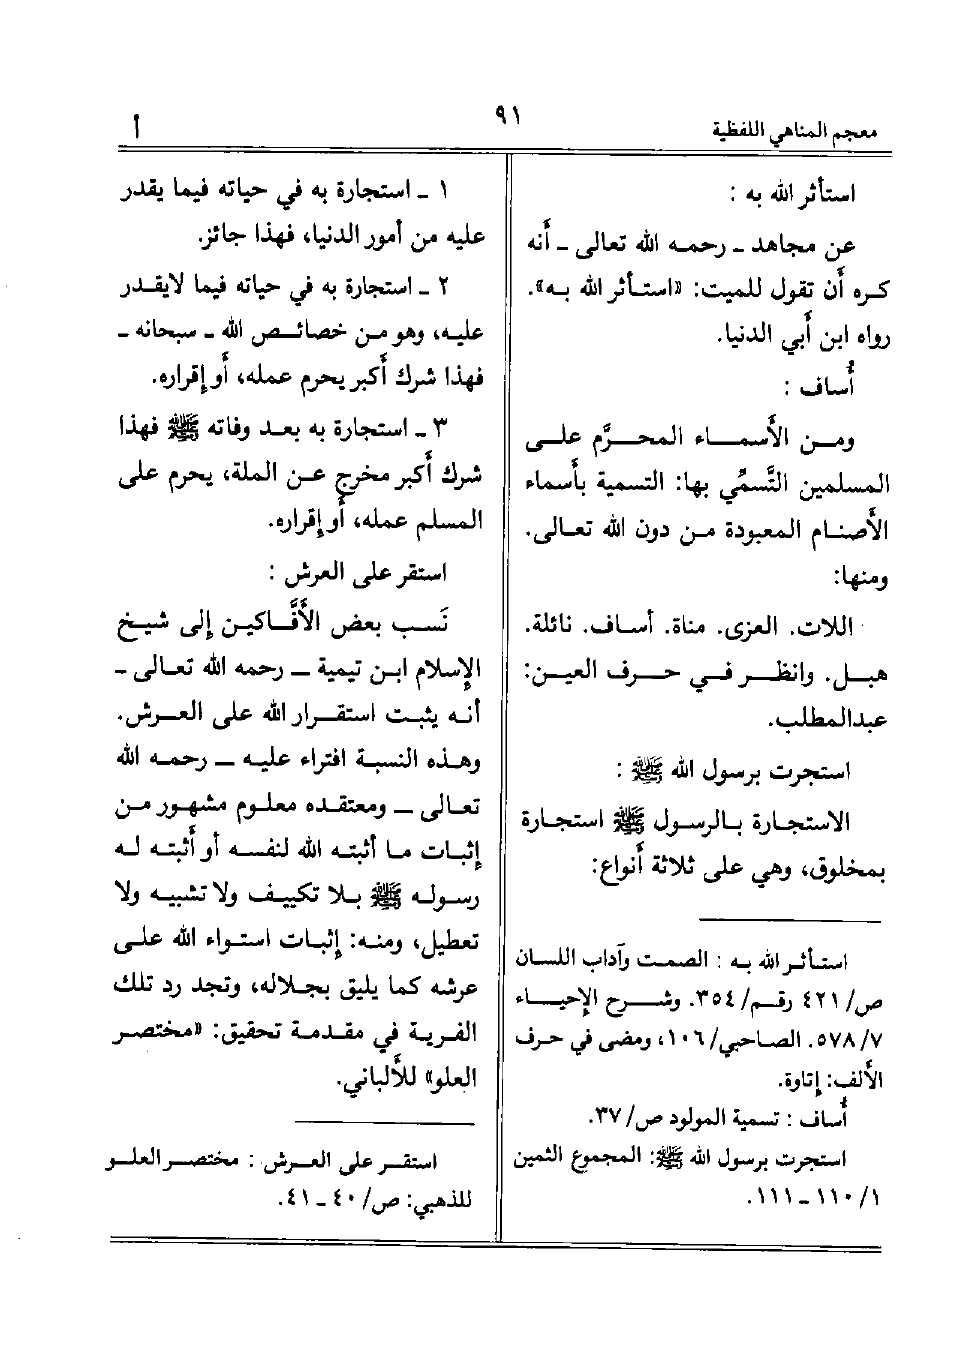 معجم المناهي اللفظية
٩١
أ
استأثر الله به :
عن مجاهد ـ رحمه الله تعالى ـ أنه
كره أن تقول للميت: «استأثر الله به».
رواه ابن أبي الدنيا.
أُساف :
ومن الأسماء المحرَّم على
المسلمين التَّسمِّي بها: التسمية بأسماء
الأصنام المعبودة من دون الله تعالى.
ومنها:
اللات. العزى. مناة. أساف. نائلة.
هبل. وانظر في حرف العين:
عبدالمطلب.
استجرت برسول الله ﷺ :
الاستجارة بالرسول ﷺ استجارة
بمخلوق، وهي على ثلاثة أنواع:
استأثر الله به : الصمت وآداب اللسان
ص/ ٤٢١ رقم/ ٣٥٤. وشرح الإحياء
٧/ ٥٧٨. الصاحبي/ ١٠٦، ومضى في حرف
الألف: إتاوة.
أُساف : تسمية المولود ص/ ٣٧.
استجرت برسول الله ﷺ: المجموع الثمين
١/ ١١٠ ـ ١١١.
١ ـ استجارة به في حياته فيما يقدر
عليه من أمور الدنيا، فهذا جائز.
٢ ـ استجارة به في حياته فيما لايقدر
عليه، وهو من خصائص الله ـ سبحانه ـ
فهذا شرك أكبر يحرم عمله، أو إقراره.
٣ ـ استجارة به بعد وفاته ﷺ فهذا
شرك أكبر مخرج عن الملة، يحرم على
المسلم عمله، أو إقراره.
استقر على العرش :
نَسب بعض الأفَّاكين إلى شيخ
الإسلام ابن تيمية ـ رحمه الله تعالى ـ
أنه يثبت استقرار الله على العرش.
وهذه النسبة افتراء عليه ـ رحمه الله
تعالى ـ ومعتقده معلوم مشهور من
إثبات ما أثبته الله لنفسه أو أثبته له
رسوله ﷺ بلا تكييف ولا تشبيه ولا
تعطيل، ومنه: إثبات استواء الله على
عرشه كما يليق بجلاله، وتجد رد تلك
الفرية في مقدمة تحقيق: «مختصر
العلو» للألباني.
استقر على العرش : مختصر العلو
للذهبي: ص/ ٤٠ ـ ٤١.